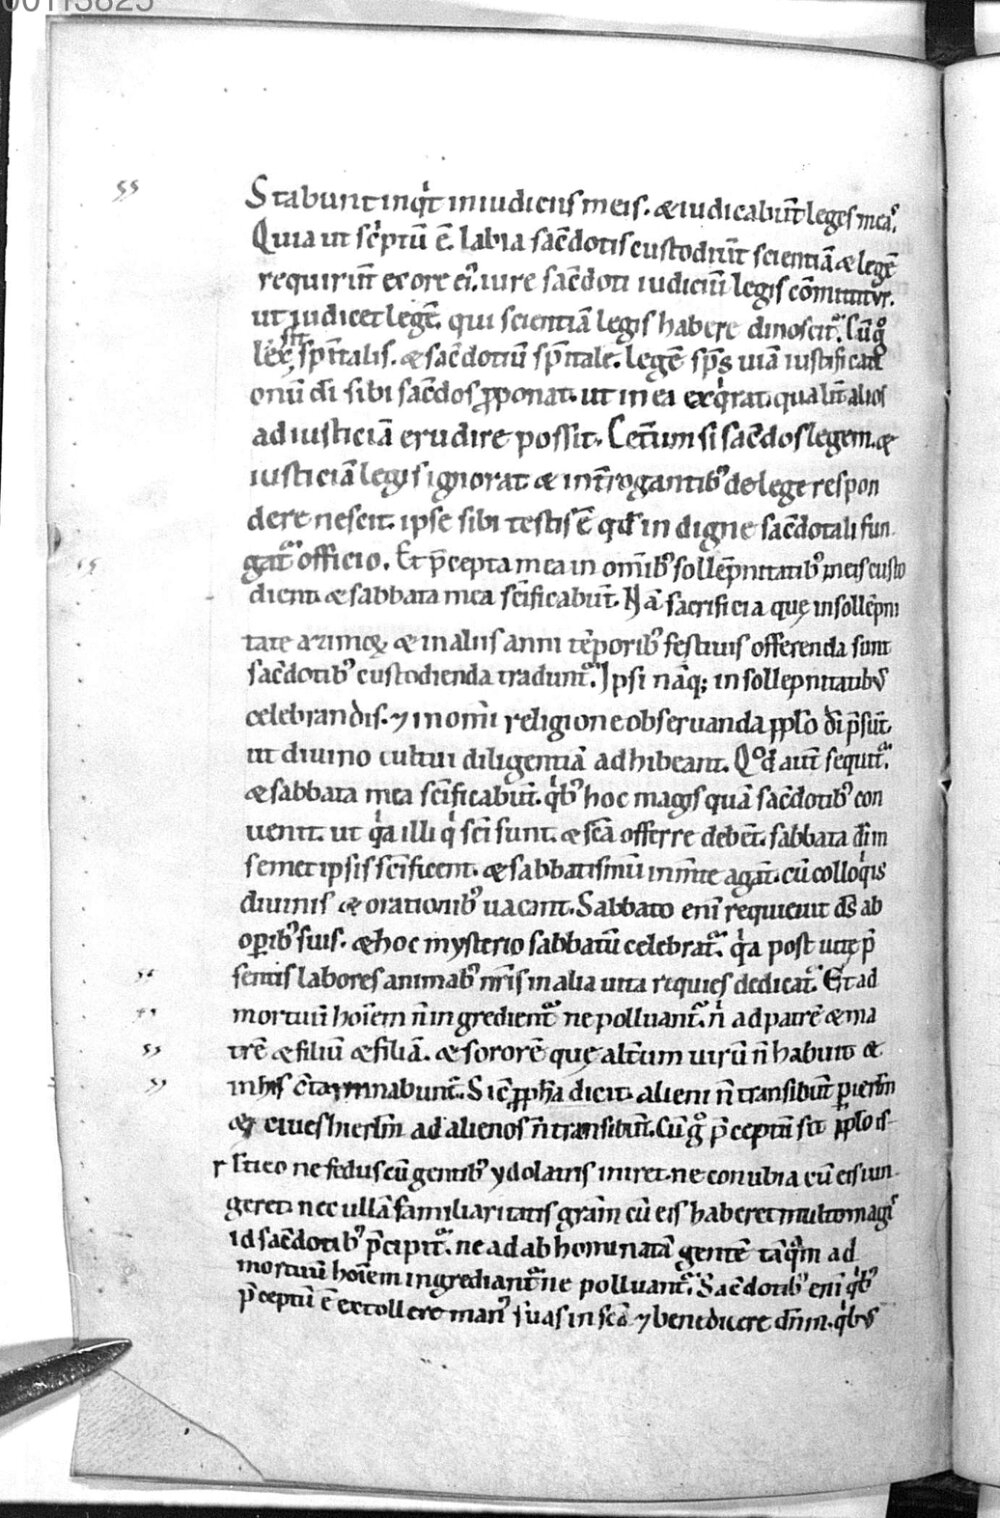 00113825
Stabunt inqͥt in iudiciis meis. & iudicabūt leges meaˢ.
Quia ut sc̄ptū ē. labia sac̄dotis custodiūt scientiā & legē
requirūt ex ore eiꝰ. iure sac̄doti iudiciū legis cōmittitᷣ.
ut iudicet legē. qui scientiā legis habere dinoscit᷑. Cū gͦ
lex sit sp̄italis. & sac̄dotiū sp̄itale. legē sp̄s uiā iustificati
onū dī sibi sac̄dos ꝓponat. ut in ea exqͥrat. qualit̄ alios
ad iusticiā erudire possit. Cet̄um si sac̄dos legem. &
iusticiā legis ignorat. & int̄rogantibꝰ de lege respon
dere nescit. ipse sibi testis ē qđ indigne sac̄dotali fun
gat᷑ officio. Et p̄cepta mea in om̄ibꝰ sollēpnitatibꝰ meis custo
dient. & sabbata mea sc̄ificabūt. Nā sacrificia quę in sollēpni
tate azimoꝝ & in aliis anni tēporibꝰ festiuis offerenda sunt
sac̄dotibꝰ custodienda tradunt᷑. Ipsi nāq; in sollepnitatibꝰ
celebrandis. ⁊ in om̄i religione obseruanda ꝓplo dī p̄sūt.
ut diuino cultui diligentiā adhibeant. Qͦd aut̄ sequit᷑.
& sabbata mea sc̄ificabūt. qͥbꝰ hoc magis quā sac̄dotibꝰ con
uenit. ut qͥa illi qͥ sc̄i sunt. & sc̄a offerre debēt. sabbata dn̄i in
semet ipsis sc̄ificent. & sabbatismū in mēte agāt. cū colloqͥis
diuinis & orationibꝰ uacant. Sabbato eni requieuit dš ab
oꝑibꝰ suis. & hoc mysterio sabbatū celebrat᷑. qͥa post uitę p̄
sentis labores animabꝰ nr̄is in alia uita requies dedicat᷑. Et ad
mortuū hoīem n̄ ingredient᷑ ne polluant᷑. nͥ ad patrē & ma
trē & filiū & filiā. & sororē quę alt̄um uirū n̄ habuit. &
in his c̄taminabunt᷑. Sic ꝓph̄a dicit. alieni n̄ transibūt ꝑ ierl̄m
& ciues hierl̄m ad alienos n̄ transibūt. Cū gͦ p̄ceptū sit ꝓplo is
r stico ne fedus cū gentibꝰ ydolatris iniret. ne conubia cū eis iun
geret. nec ullā familiaritatis grām cū eis haberet multo magiˢ
id sac̄dotibꝰ p̄cipit᷑. ne ad abhominatā gentē tāqͣm ad
mortuū hoīem ingrediant᷑ ne polluant᷑. Sac̄dotibꝰ eni qͥbꝰ
p̄ceptū ē extollere manꝰ suas in sc̄a ⁊ benedicere dn̄m. qͥbꝰ